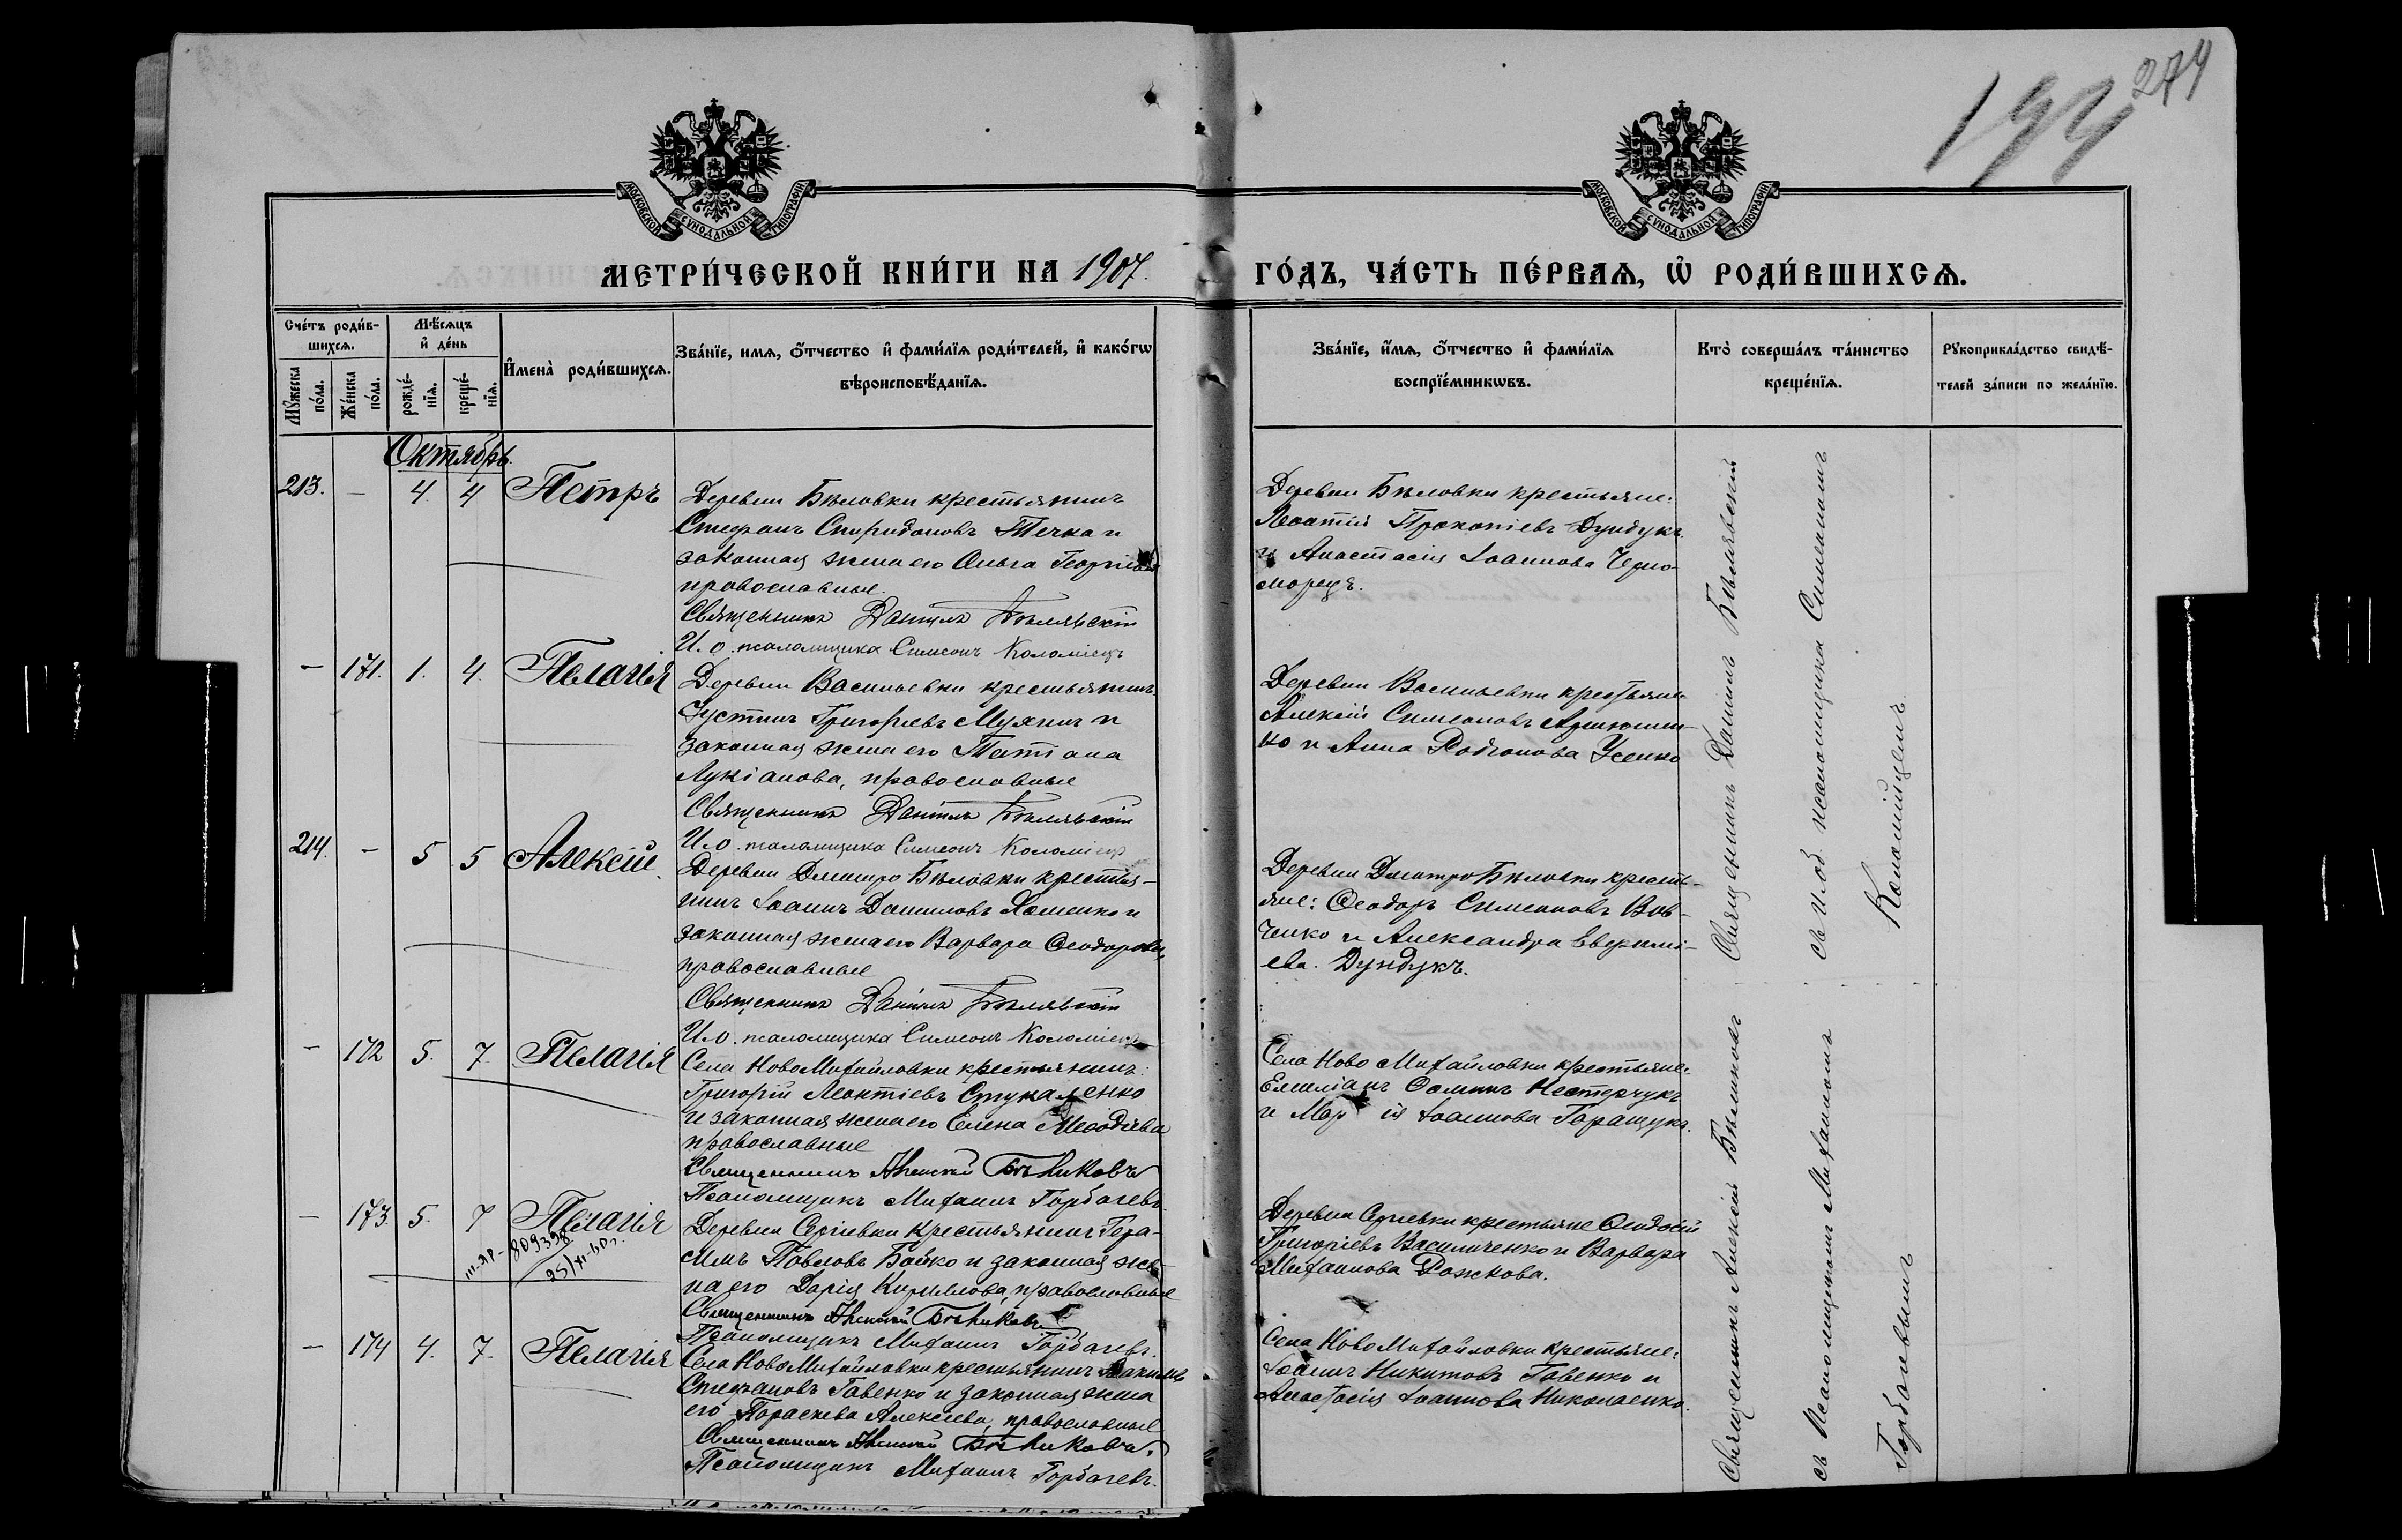 274
МОСКОВСКОЙ СѴНОДАЛЬНОЙ ТИПОГРАФІИ
МОСКОВСКОЙ СѴНОДАЛЬНОЙ ТИПОГРАФІИ
МЕТРИ́ЧЕСКОЙ КНИ́ГИ НА 1907.
ГО́ДЪ, ЧА́СТЬ ПЕ́РВАѦ, Ѡ҆ РОДИ́ВШИХСѦ.
Сче́тъ роди́в-
шихсѧ.
Мꙋ́жеска по́ла.
Же́нска по́ла.
Мѣ́сѧцъ
и҆ де́нь
рожде́-
нїѧ.
креще́-
нїѧ.
И҆мена̀ роди́вшихсѧ.
Зва́нїе, имѧ, ѻ҆́тчество и҆ фами́лїѧ роди́телей, и҆ како́гѡ
вѣроисповѣ́данїѧ.
Зва́нїе, и҆́мѧ, ѻ҆́тчество и҆ фами́лїѧ
воспрїе́мникѡвъ.
Кто̀ соверша́лъ та́инство
креще́нїѧ.
Рꙋкоприкла́дство свидѣ́-
телей за́писи по жела́нїю.
Октябрь.
213. — 4. 4 Петръ
Деревни Бѣловки крестьянинъ
Стефанъ Спиридоновъ Течка и
законная жена его Ольга Георгіева
православные.
Священникъ Даніилъ Бѣлявскій
И. о. псаломщика Симеонъ Коломіецъ
Деревни Бѣловки крестьяне:
Леонтій Прокопіевъ Дундукъ
и Анастасія Іоаннова Черно-
морецъ.
— 171. 1. 4. Пелагія
Деревни Васильевки крестьянинъ
Іустинъ Григорьевъ Мухинъ и
законная жена его Татіана
Лукіанова, православные
Священникъ Даніилъ Бѣлявскій
И. о. псаломщика Симеонъ Коломіецъ
Деревни Васильевки крестьяне
Алексій Симеоновъ
и Анна Родіонова Усенко
214. — 5 5 Алексій.
Деревни Дмитро Бѣловки крестья-
нинъ Іоаннъ Даниловъ Хоменко и
законная жена его Варвара Ѳеодорова,
православные
Священникъ Даніилъ Бѣлявскій
И. о. псаломщика Симеонъ Коломіецъ
Деревни Дмитро Бѣловки кресть-
яне: Ѳеодоръ Симеоновъ Вов-
ченко и Александра Евфимі-
ева Дундукъ.
— 172 5. 7. Пелагія
Села Ново Михайловки крестьянинъ:
Григорій Леонтіевъ Стукаленко
и законная жена его Елена Меѳодіева
православные
Священникъ Алексій Бѣликовъ
Псаломщикъ Михаилъ Горбачевъ.
Села Ново Михайловки крестьяне:
Емиліанъ Ѳоминъ Нестерчукъ
и Марія Іоаннова Геращукъ.
— 173. 5. 7 Пелагія
III-ЯР-809398
25/XI-50г.
Деревни Сергіевки крестьянинъ Гера-
симъ Павловъ Бойко и законная же-
на его Дарія Кириллова, православные
Священникъ Алексій Бѣликовъ
Псаломщикъ Михаилъ Горбачевъ.
Деревни Сергіевки крестьяне Ѳеодосій
Григоріевъ Василиченко и Варвара
Михаилова Рожкова.
— 174 4. 7. Пелагія
Села Ново Михайловки крестьянинъ Іоакимъ
Стефановъ Гавенко и законная жена
его Параскева Алексіева, православные
Священникъ Алексій Бѣликовъ.
Псаломщикъ Михаилъ Горбачевъ.
Села Ново Михайловки крестьяне:
Іоаннъ Никитовъ Гавенко и
Анастасія Іоаннова Николаенко.
Священникъ Даніилъ Бѣлявскій
съ И. об. псаломщика Симеономъ
Коломійцемъ
Священникъ Алексій Бѣликовъ
съ Псаломщикомъ Михаиломъ
Горбачевымъ